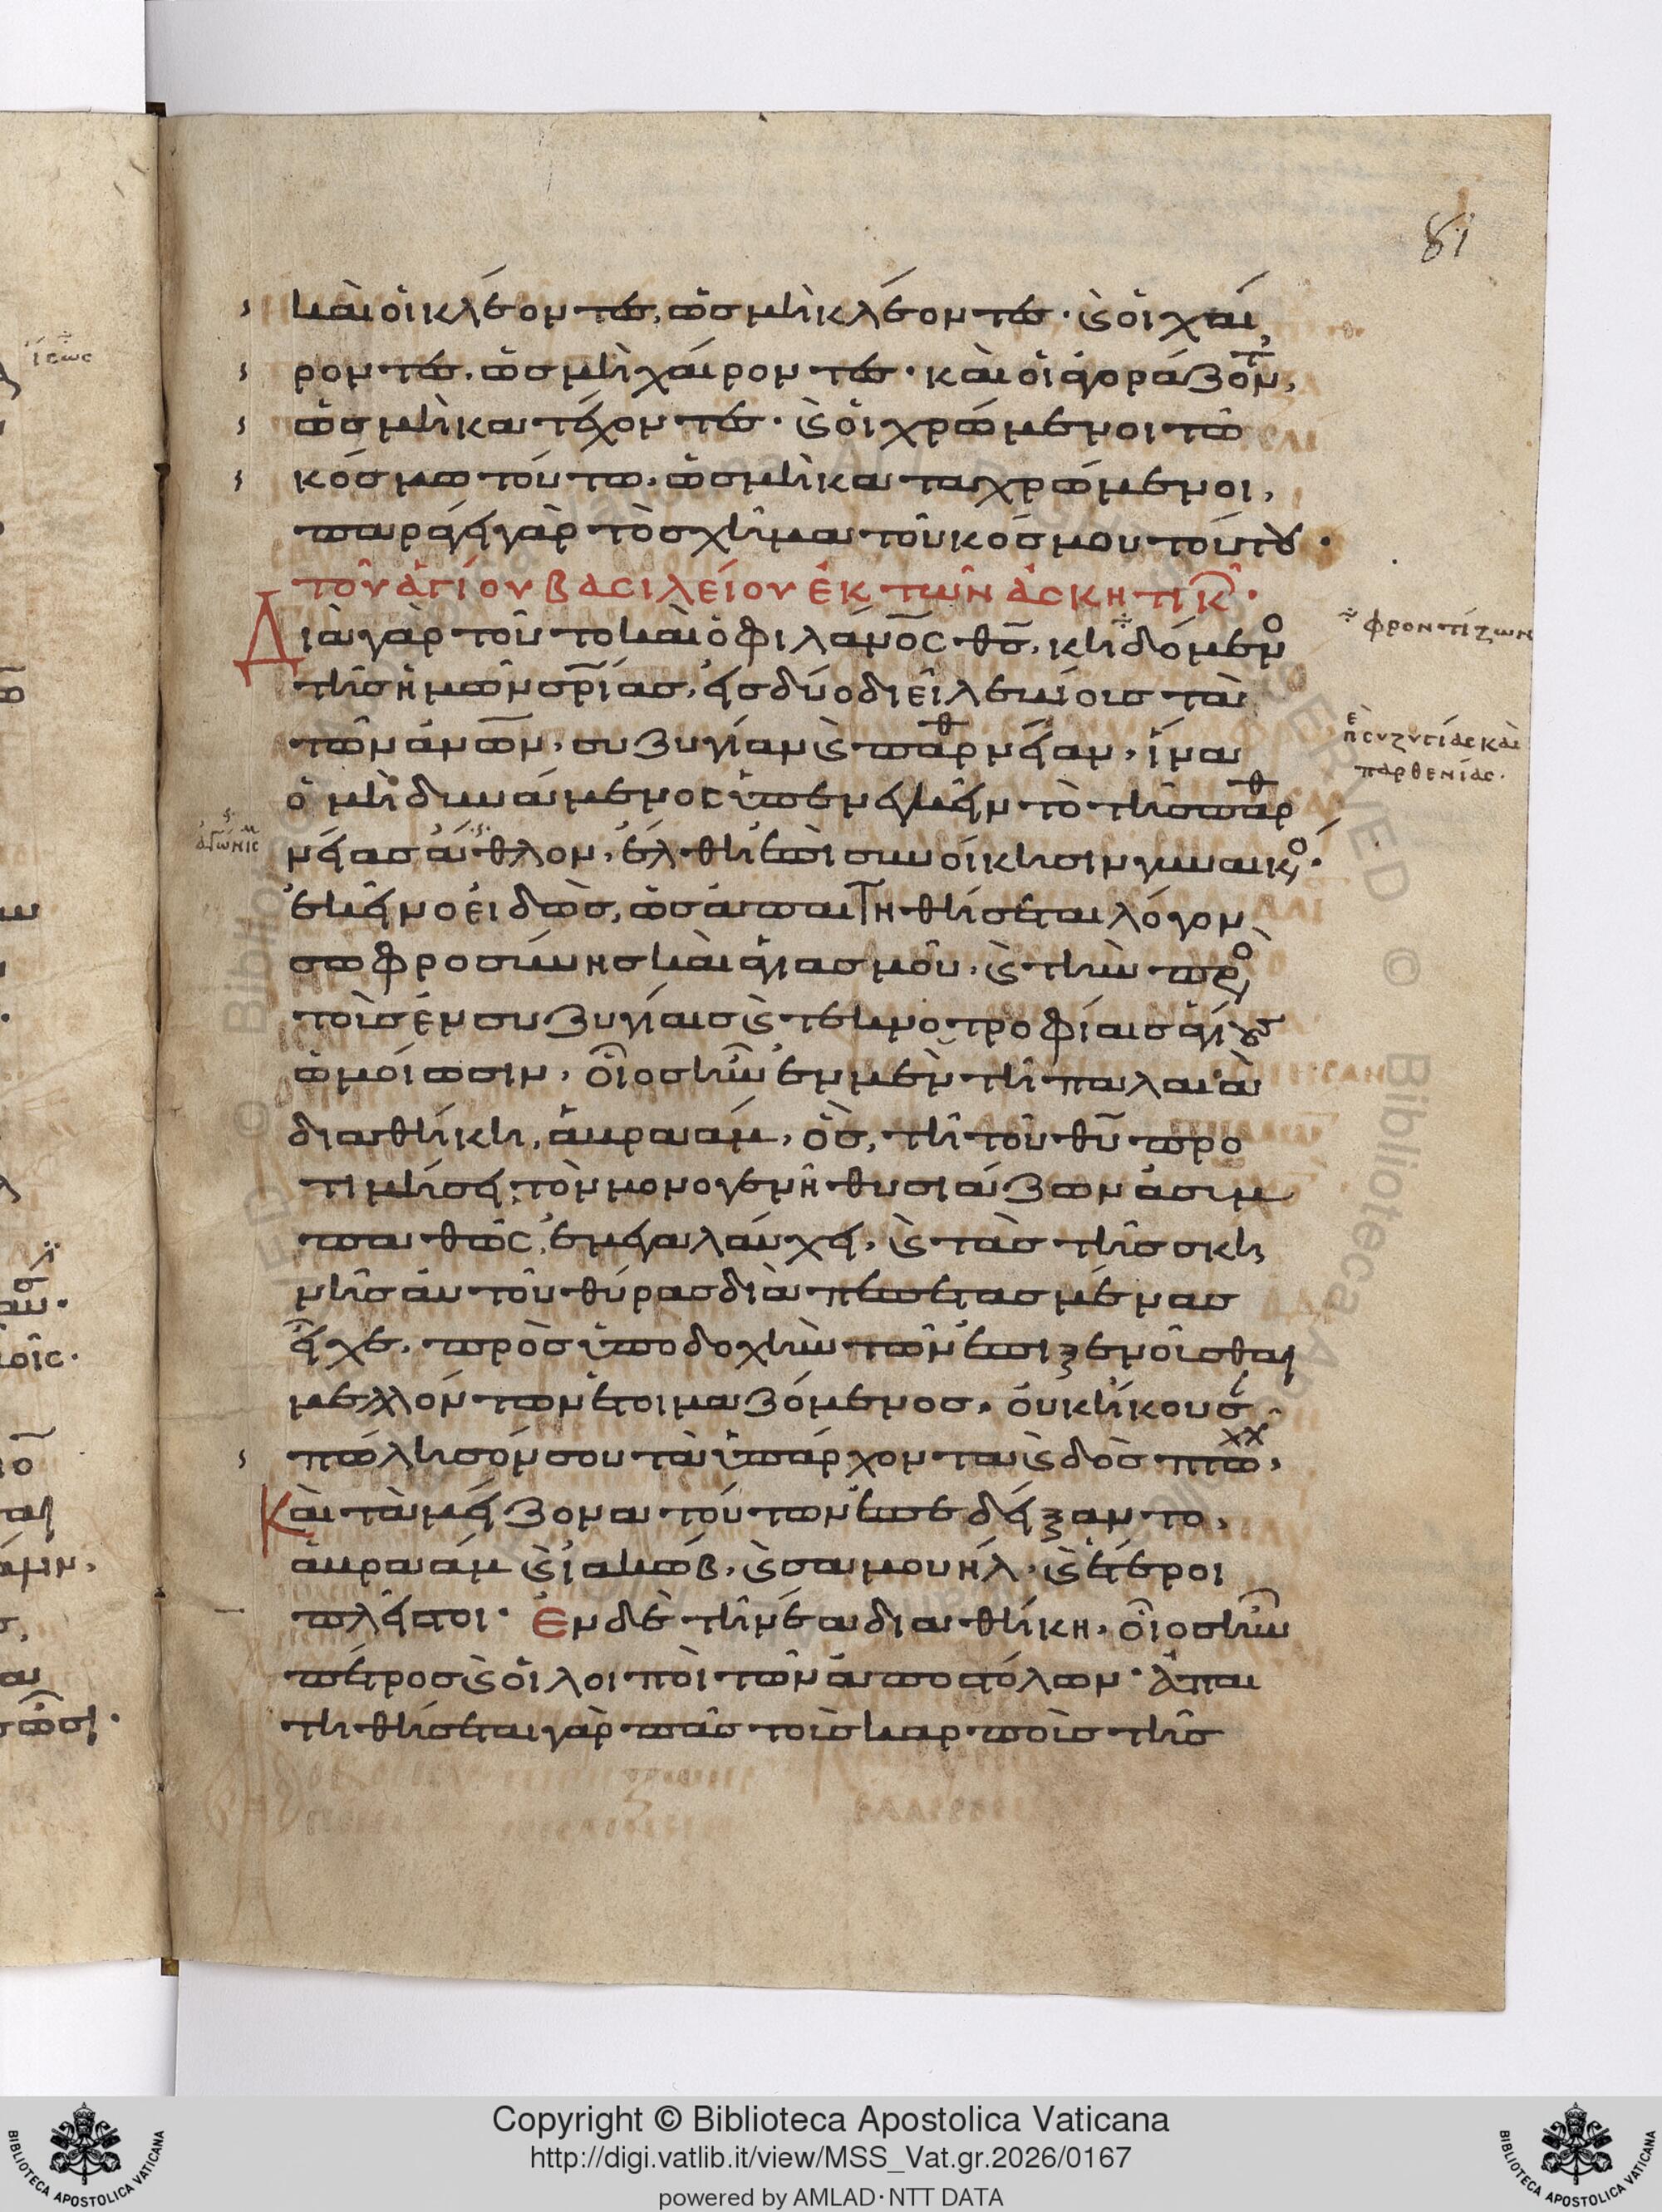 81
καὶ οἱ κλέοντες, ὡς μὴ κλέοντες· ϗ οἱ χαί
ροντες, ὡς μὴ χαίροντες· καὶ οἱ ἀγοράζοντ,
ὡς μὴ κατέχοντες· ϗ οἱ χρώμενοι τῶ
κόσμω τούτω, ὡς μὴ καταχρώμενοι,
παράγει γὰρ τὸ σχῆμα τοῦ κόσμου τούτου·
τοῦ ἁγίου βασιλείου ἐκ τῶν ἀσκητικ·
Διὰ γὰρ τοῦτο καὶ ὁ φιλάνο̅ς θς̅, κηδόμενο
τῆς ἡμῶν σρ̅ίας, εἰς δύο διεῖλε βίους τὰ
τῶν ἀνω̅ν, συζυγίαν ϗ παρθνείαν, ἵνα
ὁ μὴ δυνάμενος ὑπενεγκεῖν τὸ τῆς παρθ
νείας ἆθλον, ἔλθη ἐπὶ συνοίκησιν γυναικό·
ἐκεῖνο εἰδὼς, ὡς ἀπαιτηθήσεται λόγον
σωφροσύνης καὶ ἁγιασμοῦ, ϗ τὴν πρὸ
τοῖς ἐν συζυγίαις ϗ τεκνοτροφίαις ἁγίους
ὁμοίωσιν, οἷος ἦν ἐν μὲν τῆ παλαιᾶ
διαθήκη, ἀβραάμ, ὃς, τῆ τοῦ θυ̅ προ
τιμήσει, τὸν μονογενῆ θυσιάζων ἀσυμ
παθῶς, ἐμεγαλαύχει, ϗ τὰς τῆς σκη
νῆς αὐτοῦ θύρας διαπεπετασμένας
εἶχε, πρὸς ὑποδοχὴν τῶν ἐπιξενοῦσθαι
μελλόντων ἑτοιμαζόμενος, οὐκ ἤκουσε
πώλησόν σου τὰ ὑπάρχοντα ϗ δὸς πτωχχ,
Καὶ τὰ μείζονα τούτων ἐπεδείξαντο,
ἀβραάμ ϗ ἰακώβ, ϗ σαμουήλ, ϗ ἕτεροι
πλεῖστοι· Ἐν δὲ τῆ νέα διαθήκη, οἷος ἦν
πέτρος ϗ οἱ λοιποὶ τῶν ἀποστόλων· ἀπαι
τηθήσεται γὰρ πᾶς τοὺς καρποὺς τῆς
φροντίζων
ἢ συζυγίας καὶ
παρθενίας·
Copyright © Biblioteca Apostolica Vaticana
http://digi.vatlib.it/view/MSS_Vat.gr.2026/0167
powered by AMLAD·NTT DATA
BIBLIOTECA APOSTOLICA VATICANA
BIBLIOTECA APOSTOLICA VATICANA